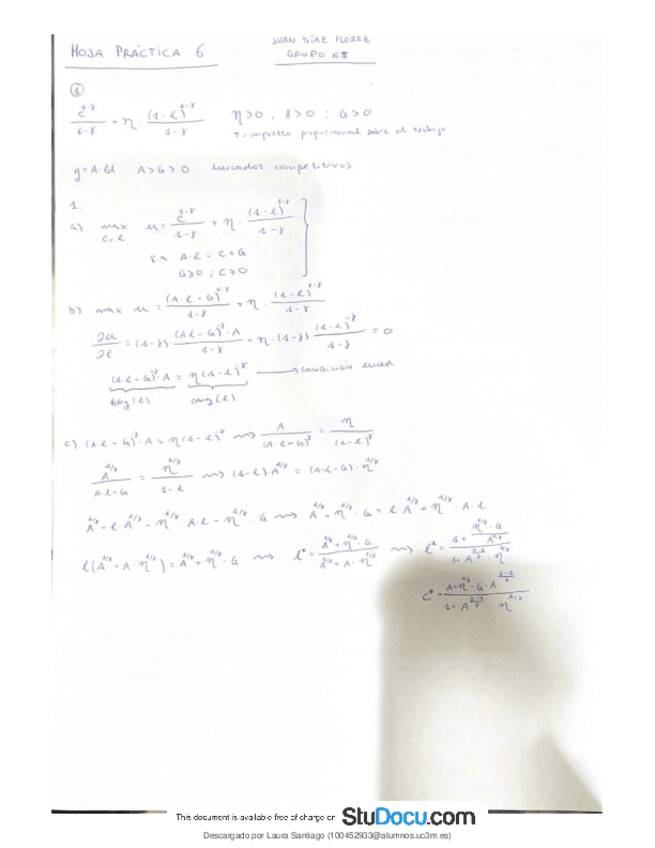 JUAN DÍAZ FLOREZ
HOJA PRÁCTICA 6 GRUPO 65
①
c^(1-γ)/(1-γ) + η · (1-l)^(1-γ)/(1-γ) η>0 ; γ>0 ; G>0
T = impuesto proporcional sobre el trabajo
y = A·ld A>G>0 Mercados competitivos
1.
a) max c, l u = c^(1-γ)/(1-γ) + η · (1-l)^(1-γ)/(1-γ)
s.a A·l = c+G
G≥0 ; c≥0
b) max u = (A·l-G)^(1-γ)/(1-γ) + η · (1-l)^(1-γ)/(1-γ)
∂u/∂l = (1-γ) · (Al-G)^-γ · A/(1-γ) - η · (1-γ) (1-l)^-γ/(1-γ) = 0
(Al-G)^-γ · A = η(1-l)^-γ → condición
BMg(l) CMg(l)
c) (A·l-G)^-γ · A = η(1-l)^-γ ⟿ A/(A·l-G)^γ = η/(1-l)^γ
A^(1/γ)/(A·l-G) = η^(1/γ)/(1-l) ⟿ (1-l)·A^(1/γ) = (A·l-G)·η^(1/γ)
A^(1/γ) - l·A^(1/γ) = η^(1/γ)·A·l - η^(1/γ)·G ⟿ A^(1/γ) + η^(1/γ)·G = l·A^(1/γ) + η^(1/γ)·A·l
l(A^(1/γ) + A·η^(1/γ)) = A^(1/γ) + η^(1/γ)·G ⟿ l* = (A^(1/γ) + η^(1/γ)·G)/(A^(1/γ) + A·η^(1/γ)) ⟿
This document is available free of charge on StuDocu.com
Descargado por Laura Santiago (100452933@alumnos.uc3m.es)